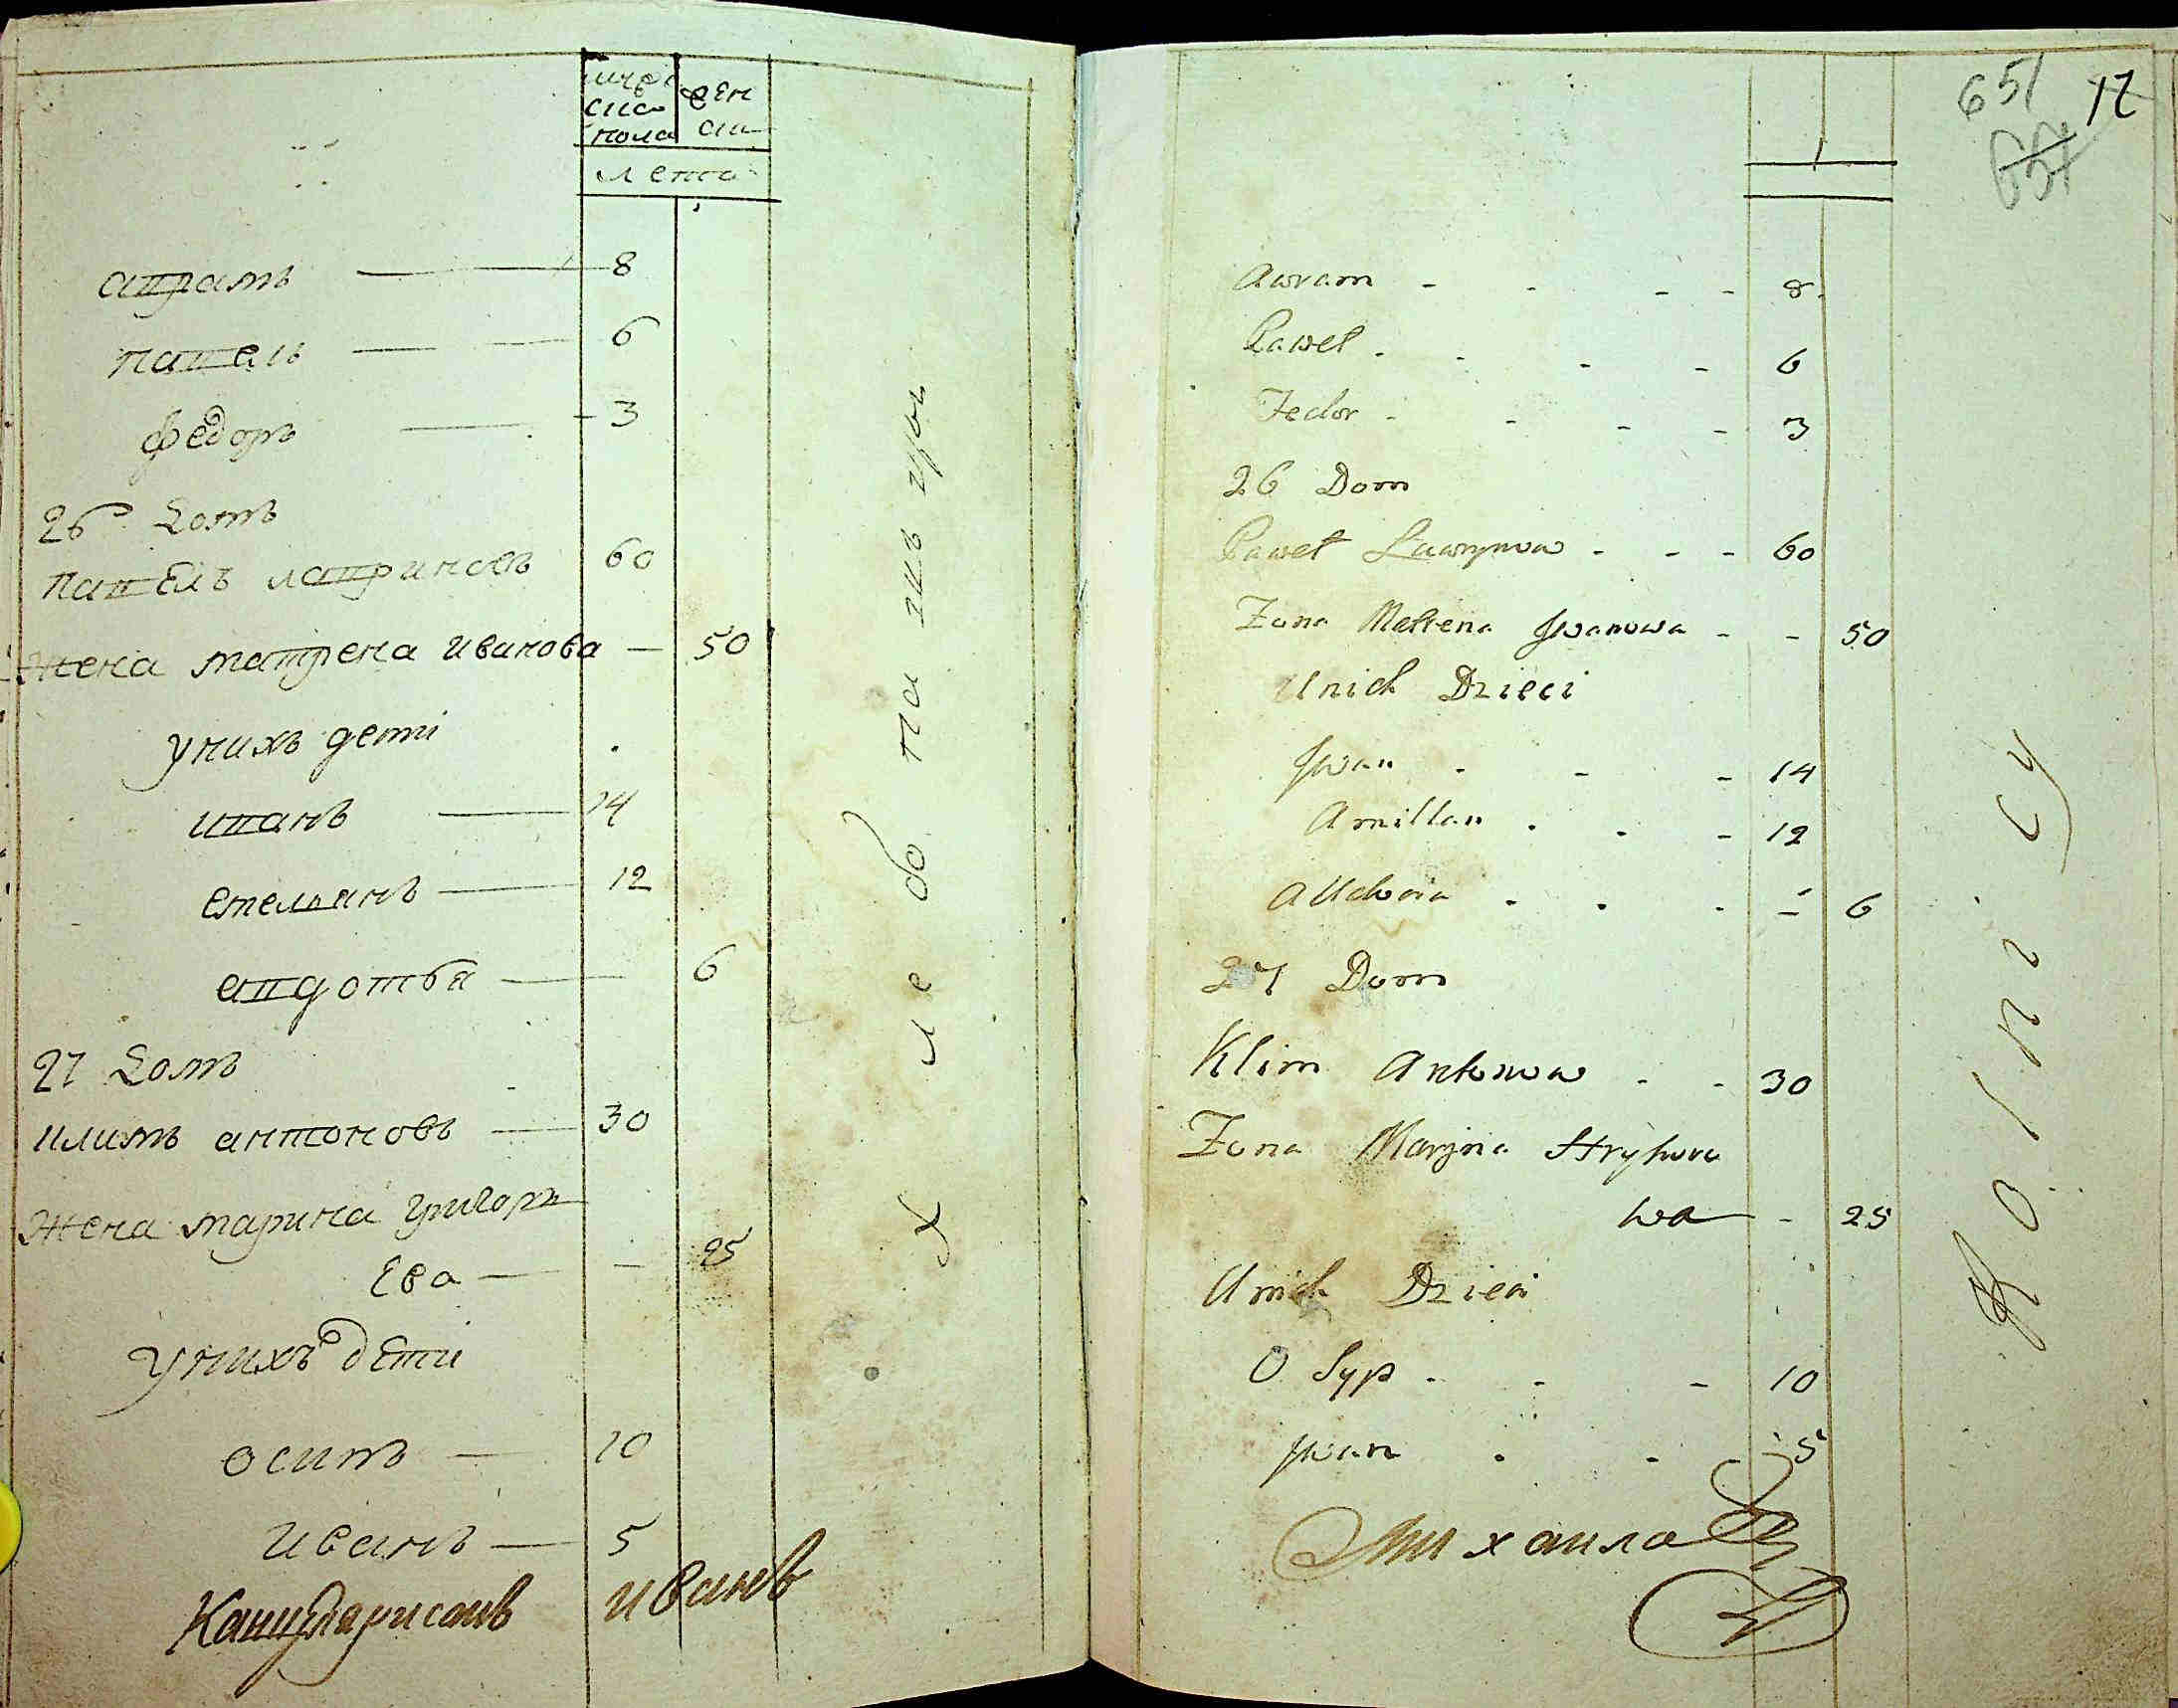 муже
ска
пола
жен
ска
лета
аврамъ — 8
павелъ — 6
федоръ — 3
26 Домъ
павелъ лавриновъ 60
жена матрена иванова — 50
унихъ дети
иванъ — 14
емельянъ — 12
авдотья — 6
27 Домъ
климъ антоновъ — 30
жена марина григорь
ева — 25
унихъ дети
осипъ — 10
иванъ — 5
Канцеляристъ иванъ
хлебопашцы
651 12
651
Awram - - - - 8
Paweł - - - - 6
Fedor - - - - 3
26 Dom
Paweł Ławrynow - - - 60
Zona Matrena Jwanowa - - 50
Unich Dzieci
Jwan - - - 14
Amillan - - - 12
Audotia - - - - 6
27 Dom
Klim Antonow - - 30
Zona Maryna Hryhore
wa - 25
Unich Dzieci
O Syp - - - 10
Jwan - - - 5
Михаила
Rolnicy